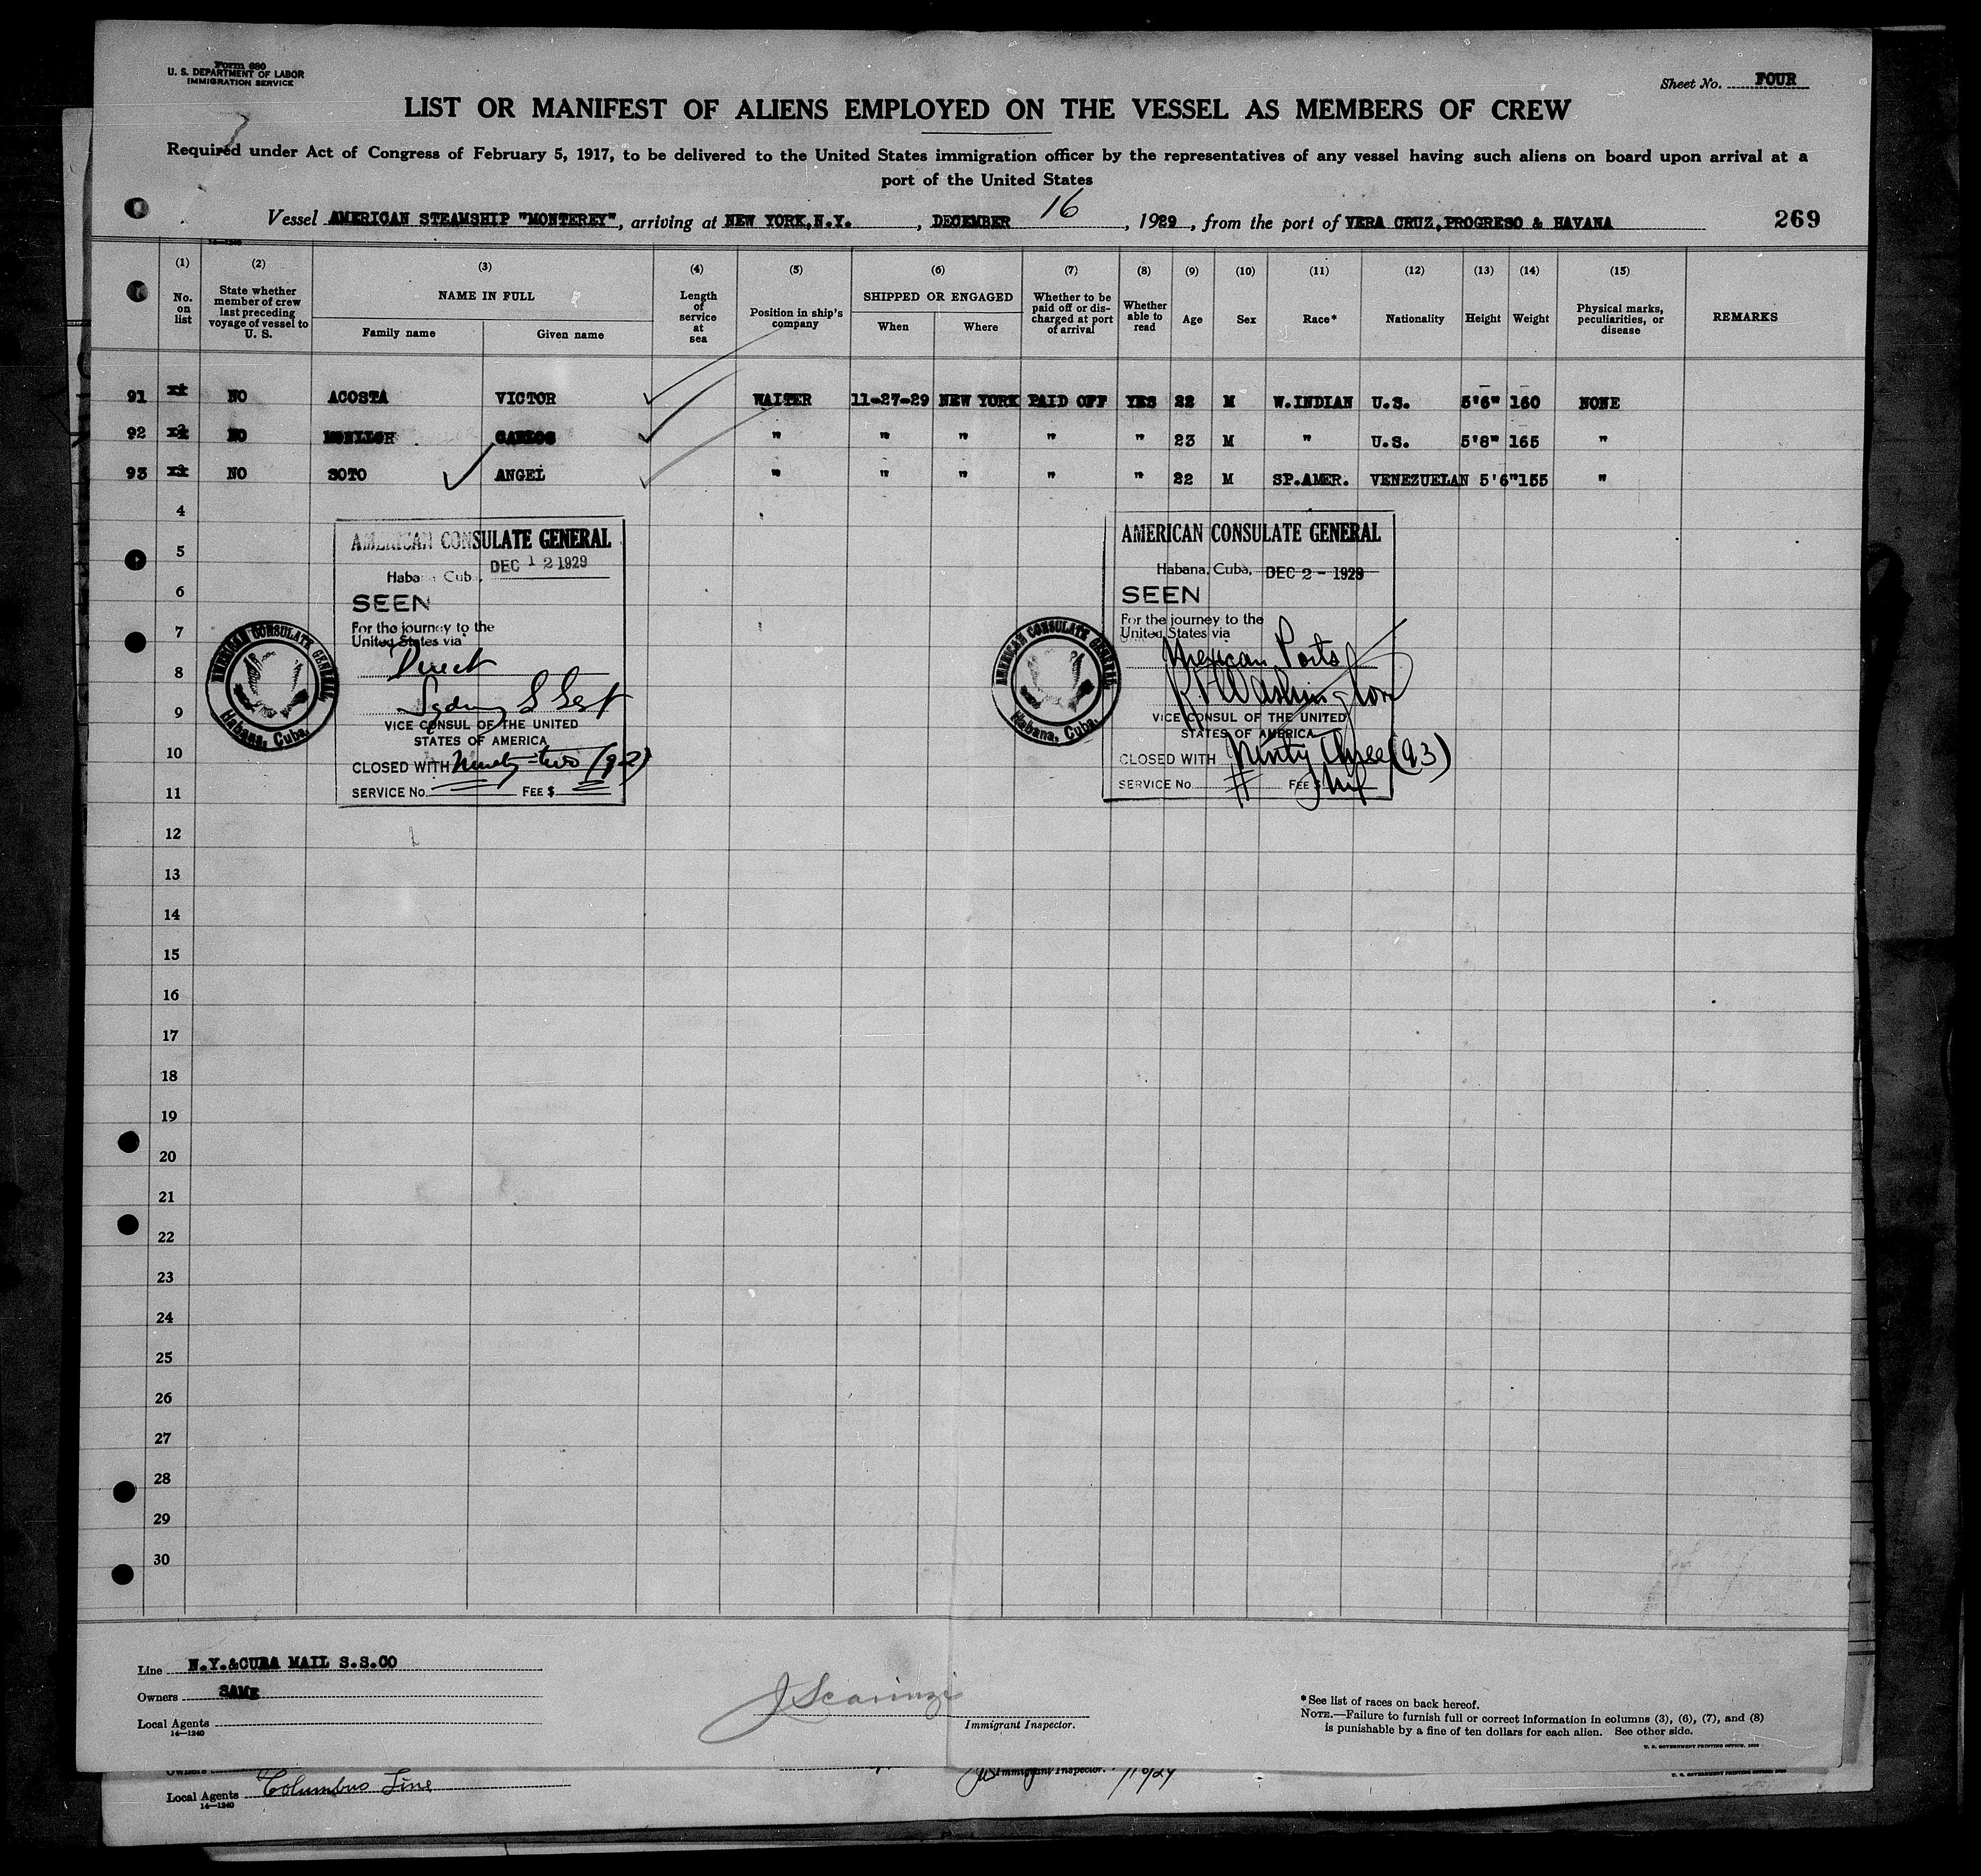 Form 680
U. S. DEPARTMENT OF LABOR
IMMIGRATION SERVICE
Sheet No. FOUR
LIST OR MANIFEST OF ALIENS EMPLOYED ON THE VESSEL AS MEMBERS OF CREW
Required under Act of Congress of February 5, 1917, to be delivered to the United States immigration officer by the representatives of any vessel having such aliens on board upon arrival at a
port of the United States
Vessel AMERICAN STEAMSHIP "MONTEREY", arriving at NEW YORK,N.Y., DECEMBER 16, 1929, from the port of VERA CRUZ,PROGRESO & HAVANA 269
14-1240
(1) (2) (3) (4) (5) (6) (7) (8) (9) (10) (11) (12) (13) (14) (15)
No. on list
State whether member of crew last preceding voyage of vessel to U. S.
NAME IN FULL
Family name Given name
Length of service at sea
Position in ship's company
SHIPPED OR ENGAGED
When Where
Whether to be paid off or discharged at port of arrival
Whether able to read
Age Sex Race* Nationality Height Weight
Physical marks, peculiarities, or disease
REMARKS
91 NO ACOSTA VICTOR WAITER 11-27-29 NEW YORK PAID OFF YES 22 M W.INDIAN U.S. 5'6" 160 NONE
92 NO CARLOS " " " " " 23 M " U.S. 5'8" 165 "
93 NO SOTO ANGEL " " " " " 22 M SP.AMER. VENEZUELAN 5'6" 155 "
4
5
6
7
8
9
10
11
12
13
14
15
16
17
18
19
20
21
22
23
24
25
26
27
28
29
30
AMERICAN CONSULATE GENERAL
Habana, Cuba, DEC 12 1929
SEEN
For the journey to the
United States via
Direct
VICE CONSUL OF THE UNITED
STATES OF AMERICA
CLOSED WITH Ninety-two (92)
SERVICE No. FEE $
AMERICAN CONSULATE GENERAL
Habana, Cuba.
AMERICAN CONSULATE GENERAL
Habana, Cuba, DEC 2 - 1929
SEEN
For the journey to the
United States via
Mexican Ports
Washington
VICE CONSUL OF THE UNITED
STATES OF AMERICA
CLOSED WITH Ninty three (93)
SERVICE No. FEE $
AMERICAN CONSULATE GENERAL
Habana, Cuba.
Line N.Y.&CUBA MAIL S.S.CO
Owners SAME
Local Agents
14-1240
Immigrant Inspector.
*See list of races on back hereof.
NOTE.—Failure to furnish full or correct information in columns (3), (6), (7), and (8)
is punishable by a fine of ten dollars for each alien. See other side.
Owners
Local Agents Columbus Line
14-1240
Immigrant Inspector.